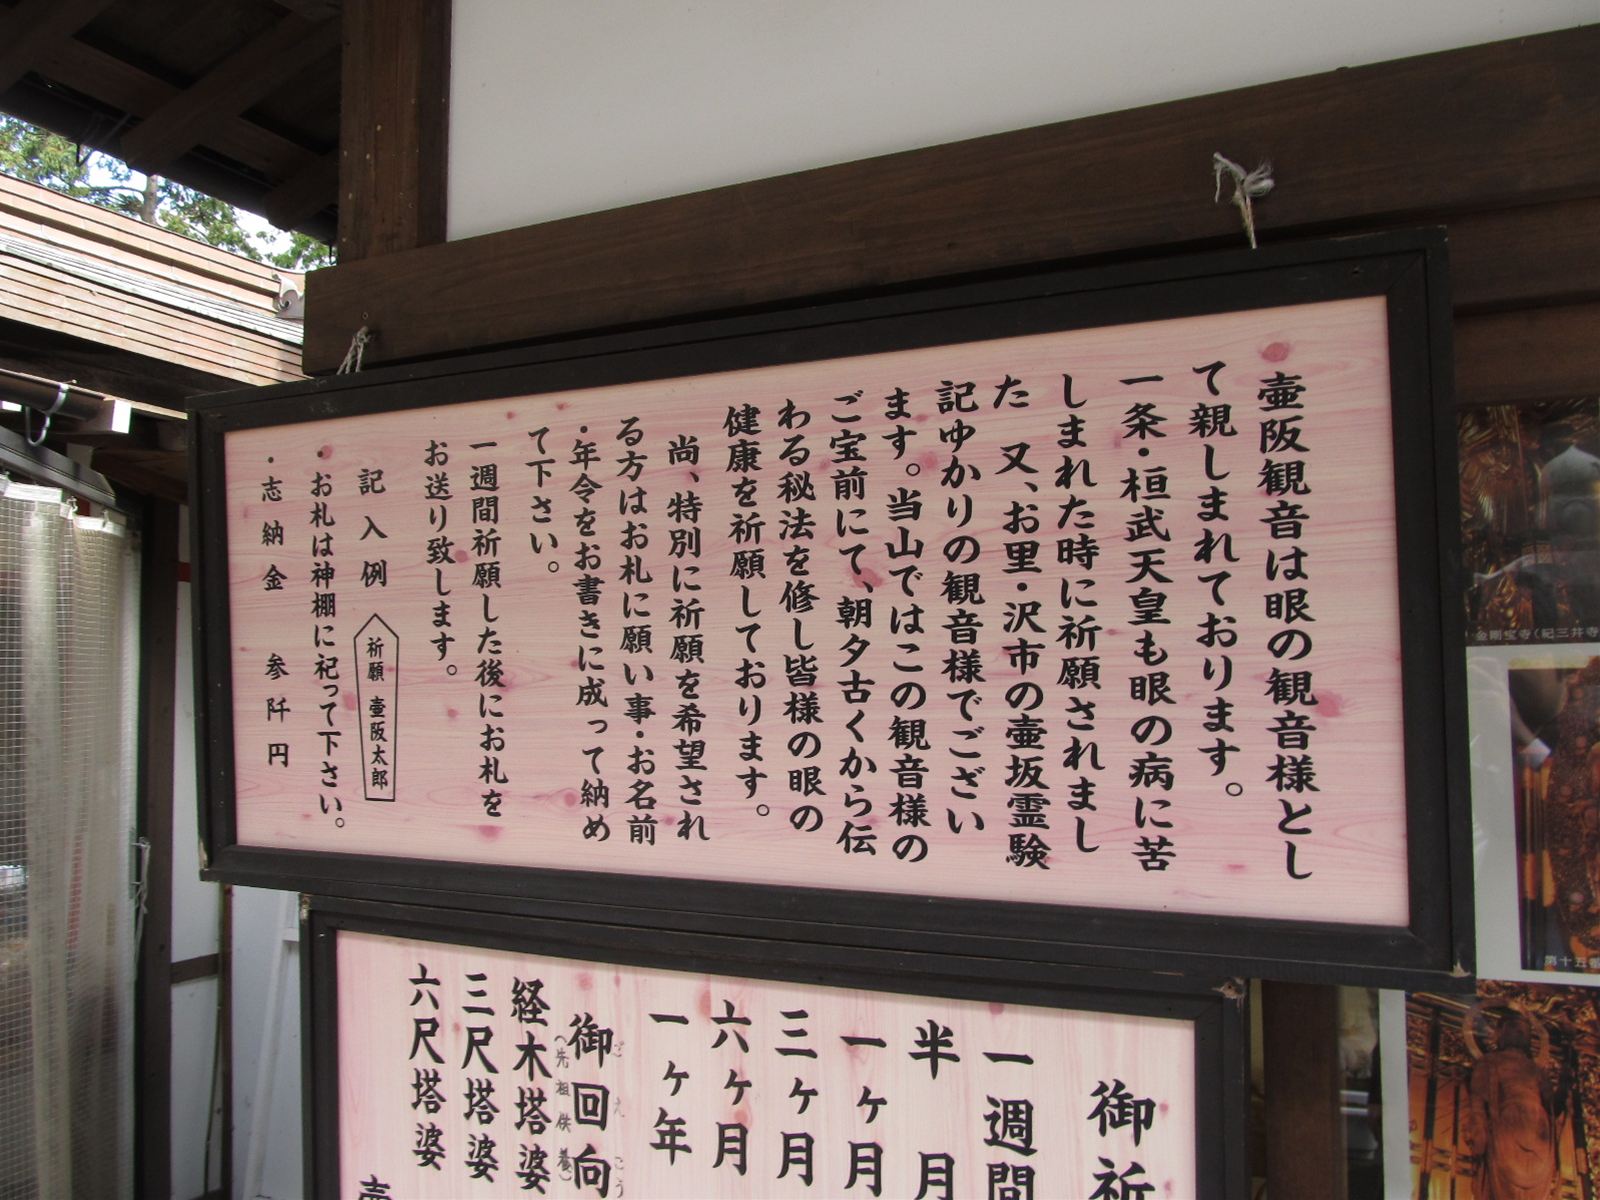 壺阪観音は眼の観音様とし
て親しまれております。
一条・桓武天皇も眼の病に苦
しまれた時に祈願されまし
た 又、お里・沢市の壺坂霊験
記ゆかりの観音様でござい
ます。当山ではこの観音様の
ご宝前にて、朝夕古くから伝
わる秘法を修し皆様の眼の
健康を祈願しております。
尚、特別に祈願を希望され
る方はお札に願い事・お名前
・年令をお書きに成って納め
て下さい。
一週間祈願した後にお札を
お送り致します。
記入例
祈願 壺阪太郎
・お札は神棚に祀って下さい。
・志納金 参阡円
御祈
一週間
半月
一ヶ月
三ヶ月
六ヶ月
一ヶ年
御回向
ごえこう
(先祖供養)
経木塔婆
三尺塔婆
六尺塔婆
壺
金剛宝寺(紀三井寺
第十五番